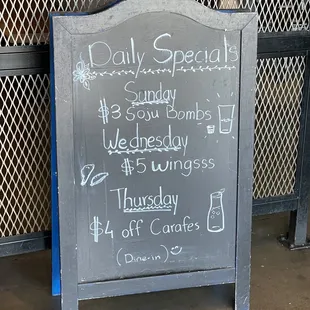 Daily Specials
Sunday
$3 Soju Bombs
Wednesday
$5 Wingsss
Thursday
$4 off Carafes
(Dine-in)